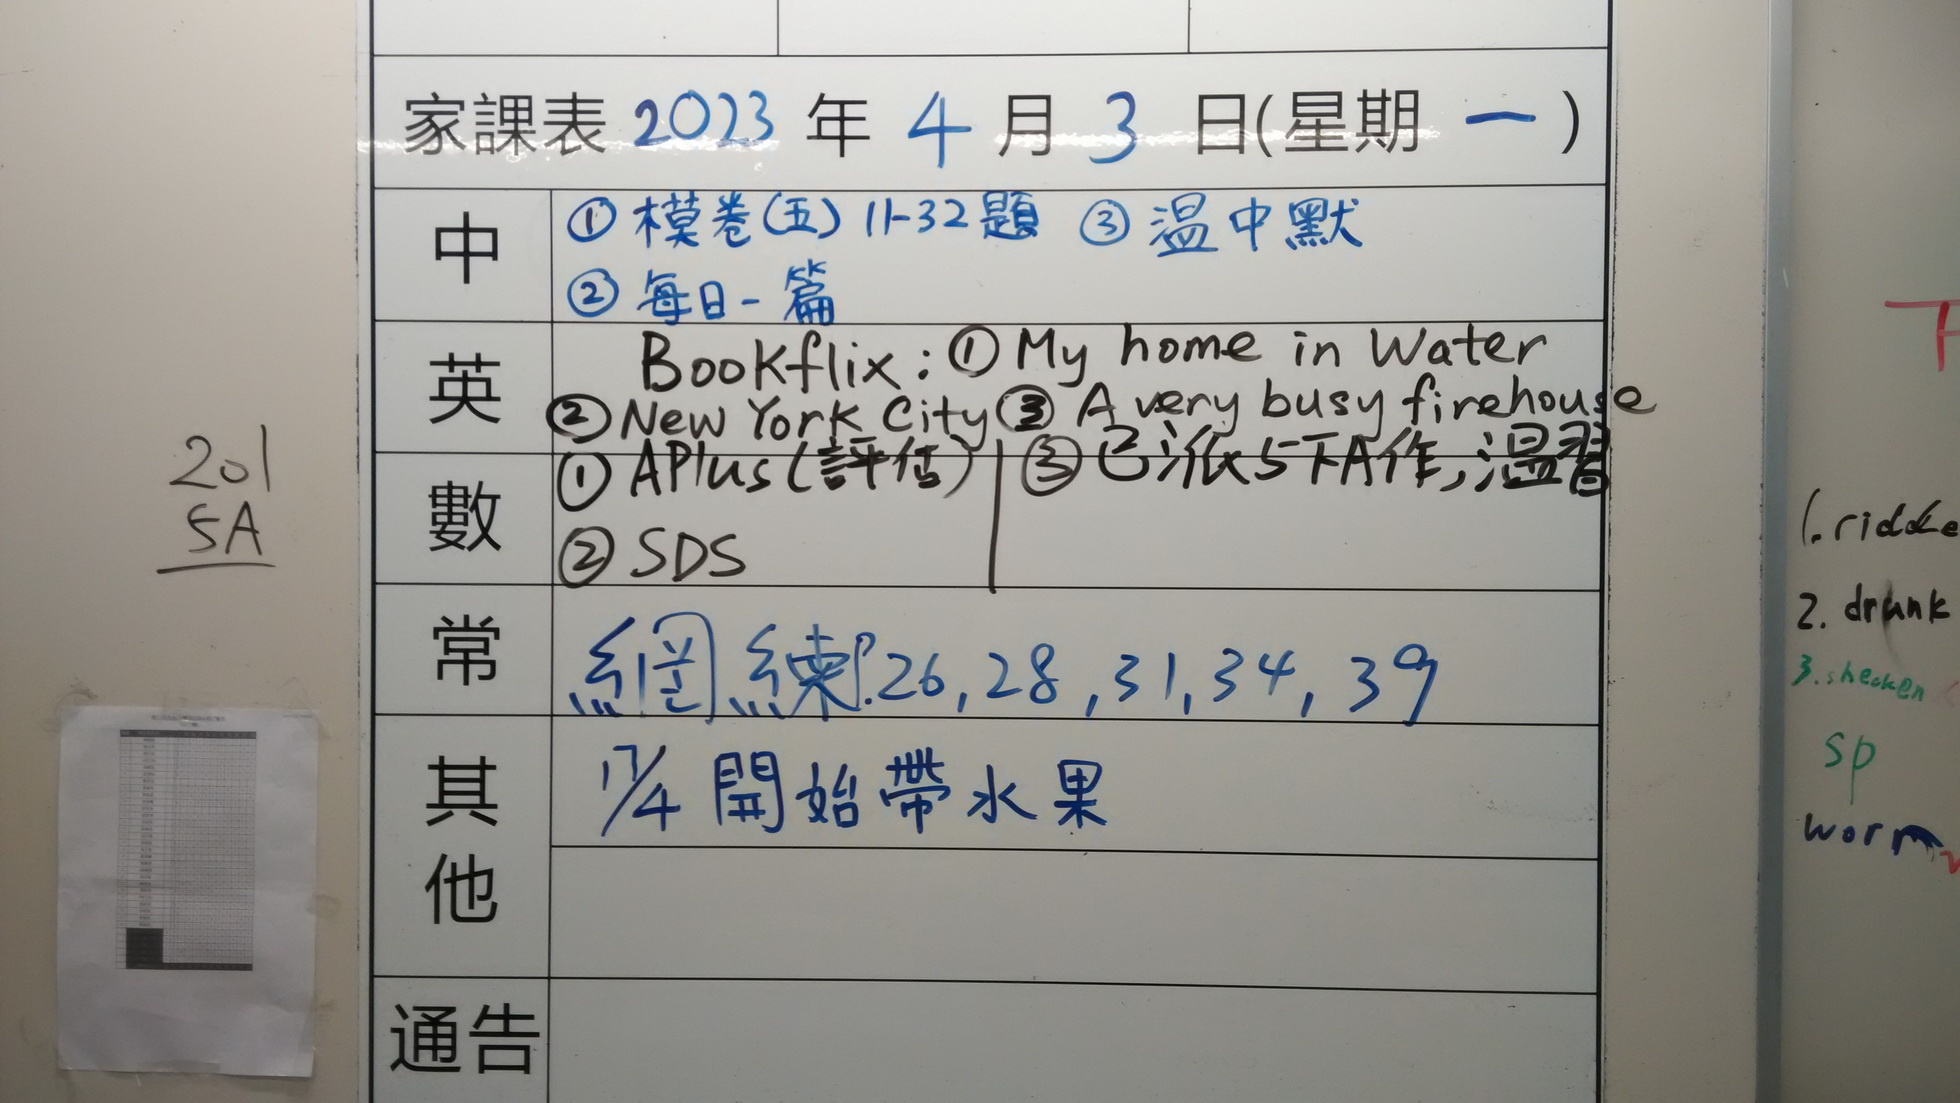 家課表 2023 年 4 月 3 日(星期 一 )
中
① 模卷(五) 11-32題 ③ 溫中默
② 每日一篇
英
Bookflix: ① My home in Water
② New York City ③ A very busy firehouse
數
① APlus(評估) ③ 已派5下A作,溫習
② SDS
常
網練P.26, 28, 31, 34, 39
其他
17/4 開始帶水果
通告
201
5A
2. drunk
sp
worm